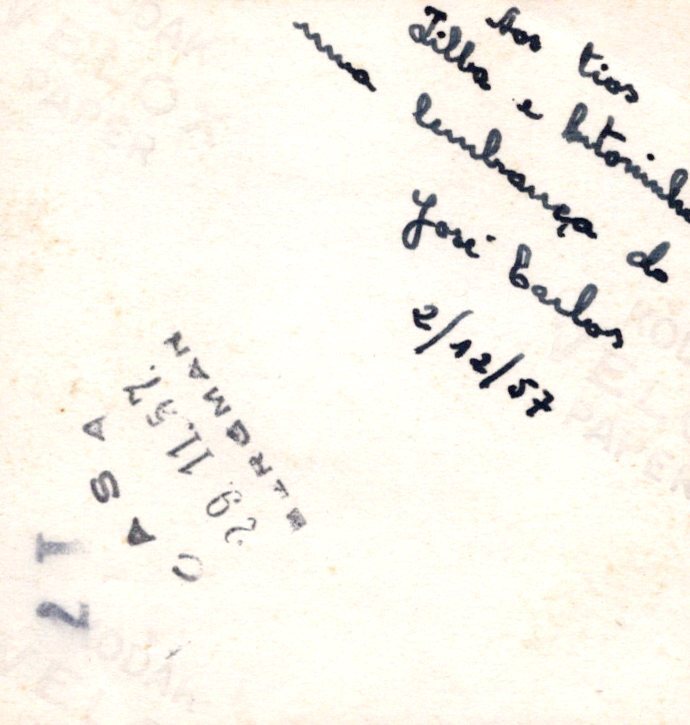 Aos tios
e Antoninho
uma lembrança do
José Carlos
2/12/57
CASA
29.11.57.
KODAK
VELOX
PAPER
KOD
VEL
PAPER